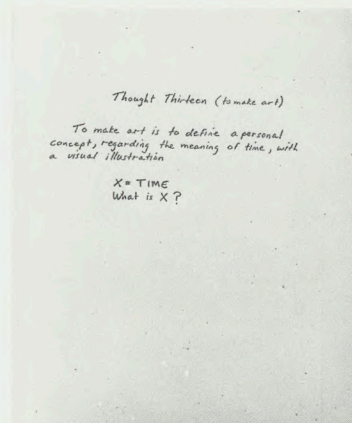 Thought Thirteen (to make art)
To make art is to define a personal
concept, regarding the meaning of time, with
a visual illustration
X = TIME
What is X ?